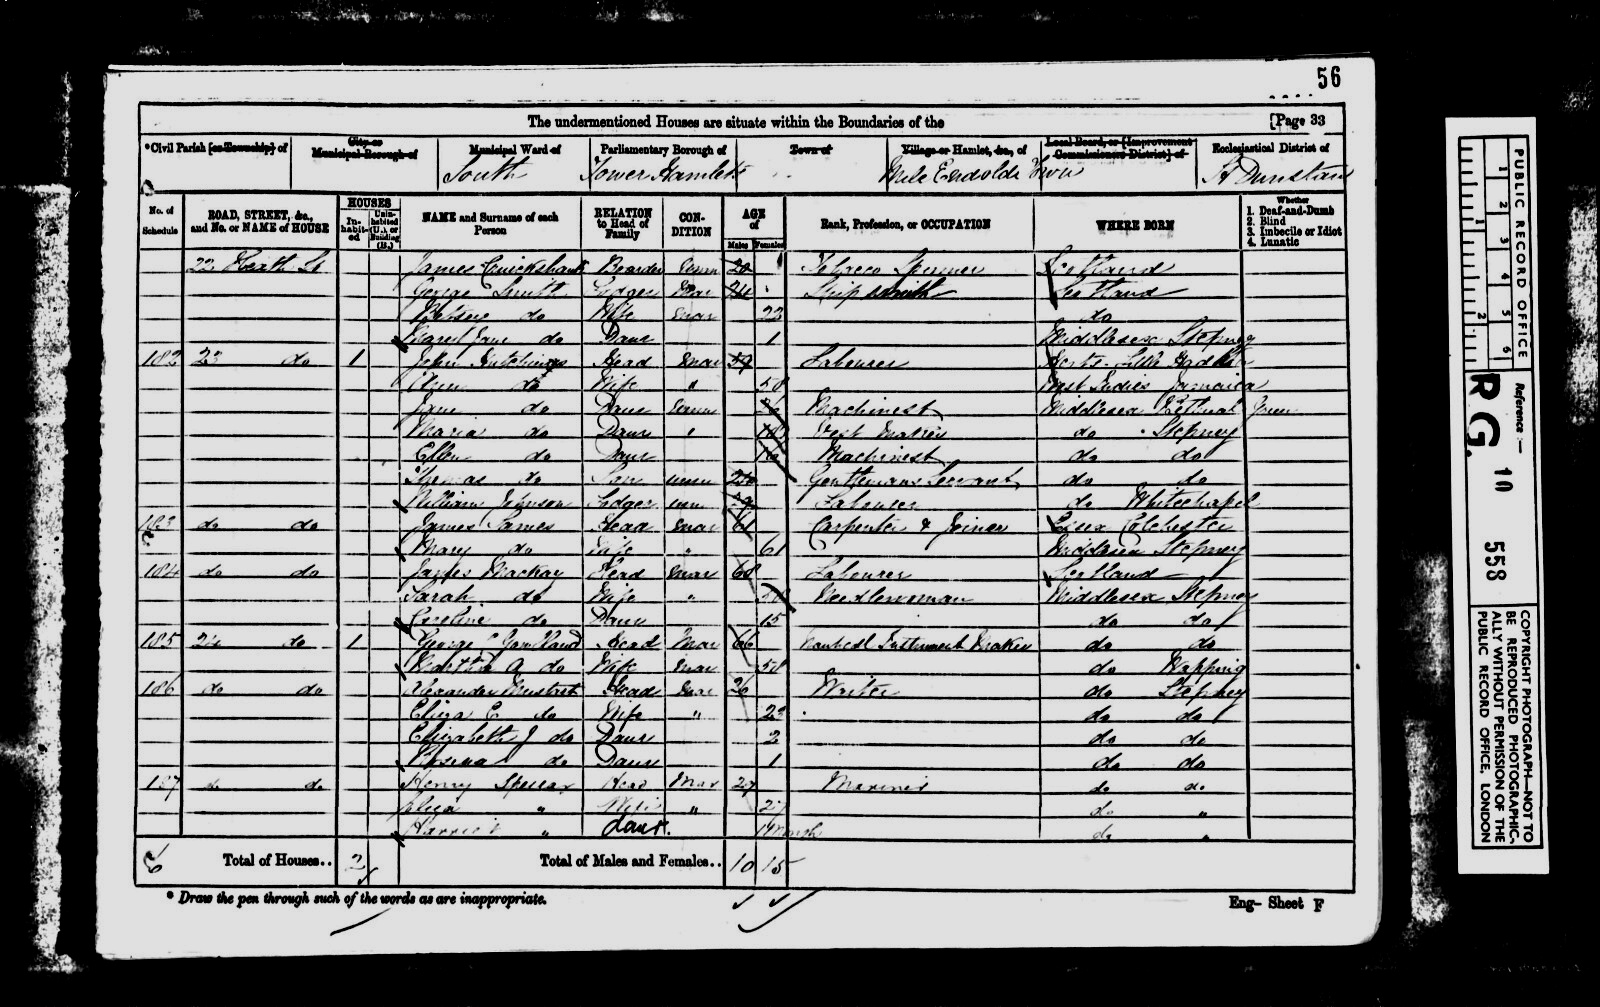 56
The undermentioned Houses are situate within the Boundaries of the [Page 33
*Civil Parish [or Township] of
City or Municipal Borough of
Municipal Ward of
South
Parliamentary Borough of
Tower Hamlets
Town of
Village or Hamlet, &c., of
Mile End Old Town
Local Board, or [Improvement Commissioners District] of
Ecclesiastical District of
St Dunstan
No. of Schedule
ROAD, STREET, &c., and No. or NAME of HOUSE
HOUSES
In-habit-ed
Unin-habited (U.), or Building (B.)
NAME and Surname of each Person
RELATION to Head of Family
CON-DITION
AGE of
Males Females
Rank, Profession, or OCCUPATION
WHERE BORN
Whether
1. Deaf-and-Dumb
2. Blind
3. Imbecile or Idiot
4. Lunatic
22 Heath St James Cruickshank Boarder Unm 20 Tobacco Spinner Scotland
George Smith Lodger Mar 24 Shipsmith Scotland
Betsey do Wife Mar 22 do
Mary Jane do Daur 1 Middlesex Stepney
182 23 do 1 John Hutchings Head Mar 59 Labourer Herts Little Hadham
Ellen do Wife " 58 West Indies Jamaica
Jane do Daur Unm 26 Machinest Middlesex Bethnal Green
Maria do Daur " 18 Vest Maker do Stepney
Ellen do Daur 16 Machinest do do
Thomas do Son Unm 20 Gentlemans Servant do do
William Johnson Lodger Unm Labourer do Whitechapel
183 do do James James Head Mar 61 Carpenter & Joiner Essex Colchester
Mary do Wife " 61 Middlesex Stepney
184 do do James Mackay Head Mar 68 Labourer Scotland
Sarah do Wife " Needlewoman Middlesex Stepney
Caroline do Daur 15 do do
185 24 do 1 George Head Mar 66 Instrument Maker do do
Martha A do Wife Mar 58 do Wapping
186 do do Alexander Head Mar 26 Writer do Stepney
Eliza C do Wife " 23 do do
Elizabeth J do Daur 2 do do
Rosina do Daur 1 do do
187 do do Henry Spellar Head Mar 27 Mariner do do
Eliza " Wife " 27 do "
Harriet " daur. 1 Month do "
Total of Houses.. 2
Total of Males and Females.. 10 15
* Draw the pen through such of the words as are inappropriate.
Eng- Sheet F
PUBLIC RECORD OFFICE
1 2 3 4 5 6
1 2
Reference :—
RG. 10 558
COPYRIGHT PHOTOGRAPH—NOT TO BE REPRODUCED PHOTOGRAPHICALLY WITHOUT PERMISSION OF THE PUBLIC RECORD OFFICE, LONDON